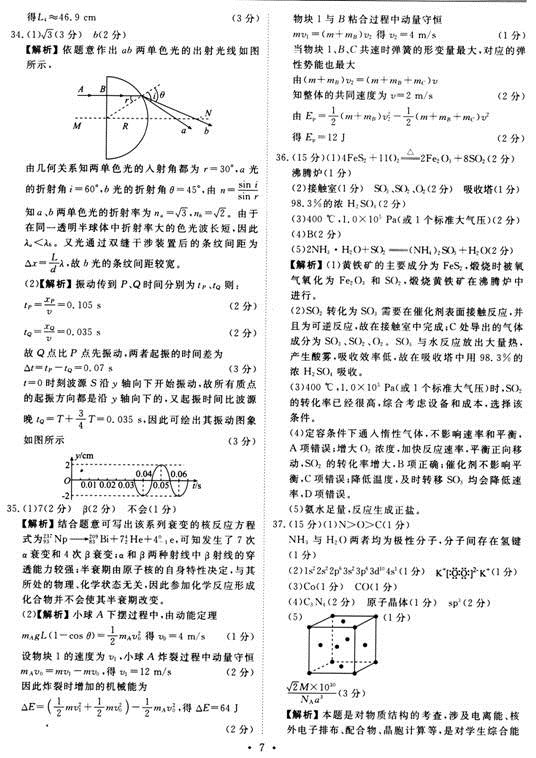 得L₁≈46.9 cm (3分)
34.(1)√3(3分) b(2分)
【解析】依题意作出 ab 两单色光的出射光线如图
所示,
A B r i θ N
M R a b
由几何关系知两单色光的入射角都为 r=30°,a 光
的折射角 i=60°,b 光的折射角 θ=45°,由 n=sin i/sin r
知 a、b 两单色光的折射率为 nₐ=√3,n_b=√2。由于
在同一透明半球体中折射率大的色光波长短,因此
λₐ<λ_b。又光通过双缝干涉装置后的条纹间距为
Δx=L/d λ,故 b 光的条纹间距较宽。
(2)【解析】振动传到 P、Q 时间分别为 t_P、t_Q 则:
t_P=x_P/v=0.105 s (2分)
t_Q=x_Q/v=0.035 s (2分)
故 Q 点比 P 点先振动,两者起振的时间差为
Δt=t_P-t_Q=0.07 s (3分)
t=0 时刻波源 S 沿 y 轴向下开始振动,故所有质点
的起振方向都是沿 y 轴向下的,又起振时间比波源
晚 t_Q=T+3/4 T=0.035 s,因此可绘出其振动图象
如图所示 (3分)
y/cm
2 0.04 0.06
0 0.01 0.02 0.03 0.05 t/s
-2
35.(1)7(2分) β(2分) 不会(1分)
【解析】结合题意可写出该系列衰变的核反应方程
式为²³⁷₉₃Np→²⁰⁹₈₃Bi+7⁴₂He+4⁰₋₁e,可知发生了 7 次
α 衰变和 4 次 β 衰变;α 和 β 两种射线中 β 射线的穿
透能力较强;半衰期由原子核的自身特性决定,与其
所处的物理、化学状态无关,因此参加化学反应形成
化合物并不会使其半衰期改变。
(2)【解析】小球 A 下摆过程中,由动能定理
m_A gL(1-cos θ)=1/2 m_A v₀² 得 v₀=4 m/s (1分)
设物块 1 的速度为 v₁,小球 A 炸裂过程中动量守恒
m_A v₀=mv₁-mv₀,得 v₁=12 m/s (2分)
因此炸裂时增加的机械能为
ΔE=(1/2 mv₁²+1/2 mv₀²)-1/2 m_A v₀²,得 ΔE=64 J
(2分)
物块 1 与 B 粘合过程中动量守恒
mv₁=(m+m_B)v₂ 得 v₂=4 m/s (1分)
当物块 1、B、C 共速时弹簧的形变量最大,对应的弹
性势能也最大
由(m+m_B)v₂=(m+m_B+m_C)v
知整体的共同速度为 v=2 m/s (2分)
由 E_p=1/2(m+m_B)v₂²-1/2(m+m_B+m_C)v²
得 E_p=12 J (2分)
36.(15分)(1)4FeS₂+11O₂ =△= 2Fe₂O₃+8SO₂(2分)
沸腾炉(1分)
(2)接触室(1分) SO₃、SO₂、O₂(2分) 吸收塔(1分)
98.3%的浓 H₂SO₄(2分)
(3)400 ℃,1.0×10⁵ Pa(或 1 个标准大气压)(2分)
(4)B(2分)
(5)2NH₃·H₂O+SO₂══(NH₄)₂SO₃+H₂O(2分)
【解析】(1)黄铁矿的主要成分为 FeS₂,煅烧时被氧
气氧化为 Fe₂O₃ 和 SO₂,煅烧黄铁矿在沸腾炉中
进行。
(2)SO₂ 转化为 SO₃ 需要在催化剂表面接触反应,并
且为可逆反应,故在接触室中完成;C 处导出的气体
成分为 SO₃、SO₂、O₂。SO₃ 与水反应放出大量热,
产生酸雾,吸收效率低,故在吸收塔中用 98.3%的
浓 H₂SO₄ 吸收。
(3)400 ℃,1.0×10⁵ Pa(或 1 个标准大气压)时,SO₂
的转化率已经很高,综合考虑设备和成本,选择该
条件。
(4)定容条件下通入惰性气体,不影响速率和平衡,
A 项错误;增大 O₂ 浓度,加快反应速率,平衡正向移
动,SO₂ 的转化率增大,B 项正确;催化剂不影响平
衡,C 项错误;降低温度,及时转移 SO₃ 均会降低速
率,D 项错误。
(5)氨水足量,反应生成正盐。
37.(15分)(1)N>O>C(1分)
NH₃ 与 H₂O 两者均为极性分子,分子间存在氢键
(1分)
(2)1s²2s²2p⁶3s²3p⁶3d¹⁰4s¹(1分) K⁺[:Ö:Ö:]²⁻K⁺(1分)
(3)Co(1分) CO(1分)
(4)C₃N₄(2分) 原子晶体(1分) sp³(2分)
(5) (1分)
√2M×10³⁰/N_A a³(3分)
【解析】本题是对物质结构的考查,涉及电离能、核
外电子排布、配合物、晶胞计算等,是对学生综合能
· 7 ·